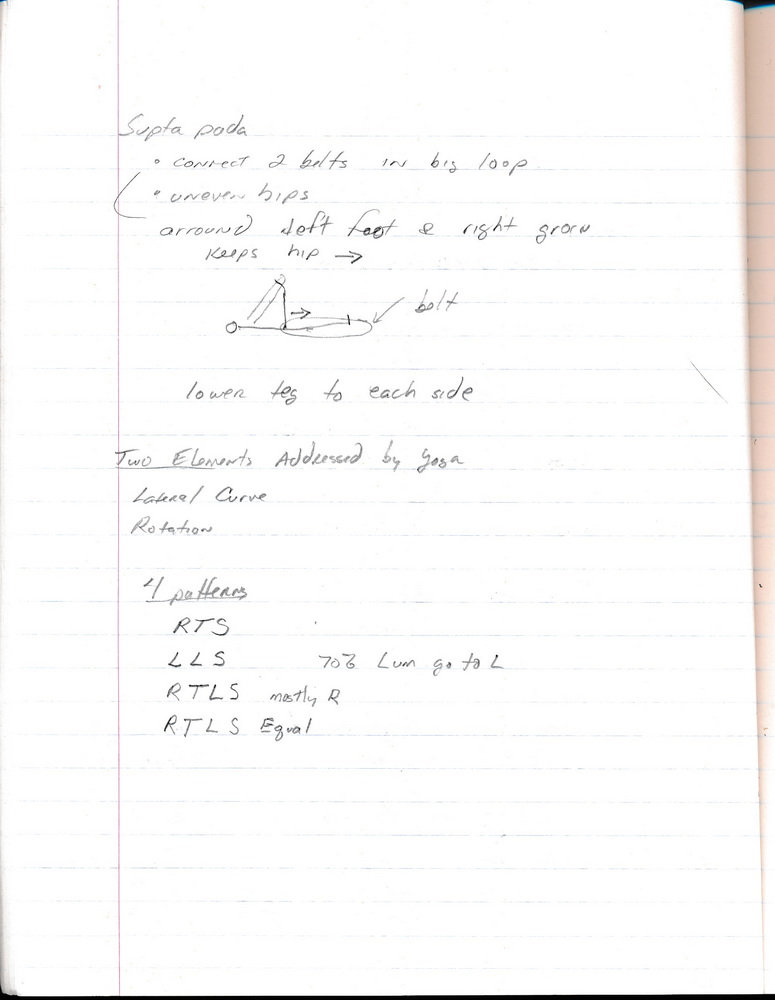 Supta pada
• connect 2 belts in big loop
• uneven hips
arround left foot & right groin
keeps hip →
belt
lower leg to each side
Two Elements Addressed by Yoga
Lateral Curve
Rotation
4 patterns
RTS
LLS 70% Lum go to L
RTLS mostly R
RTLS Equal